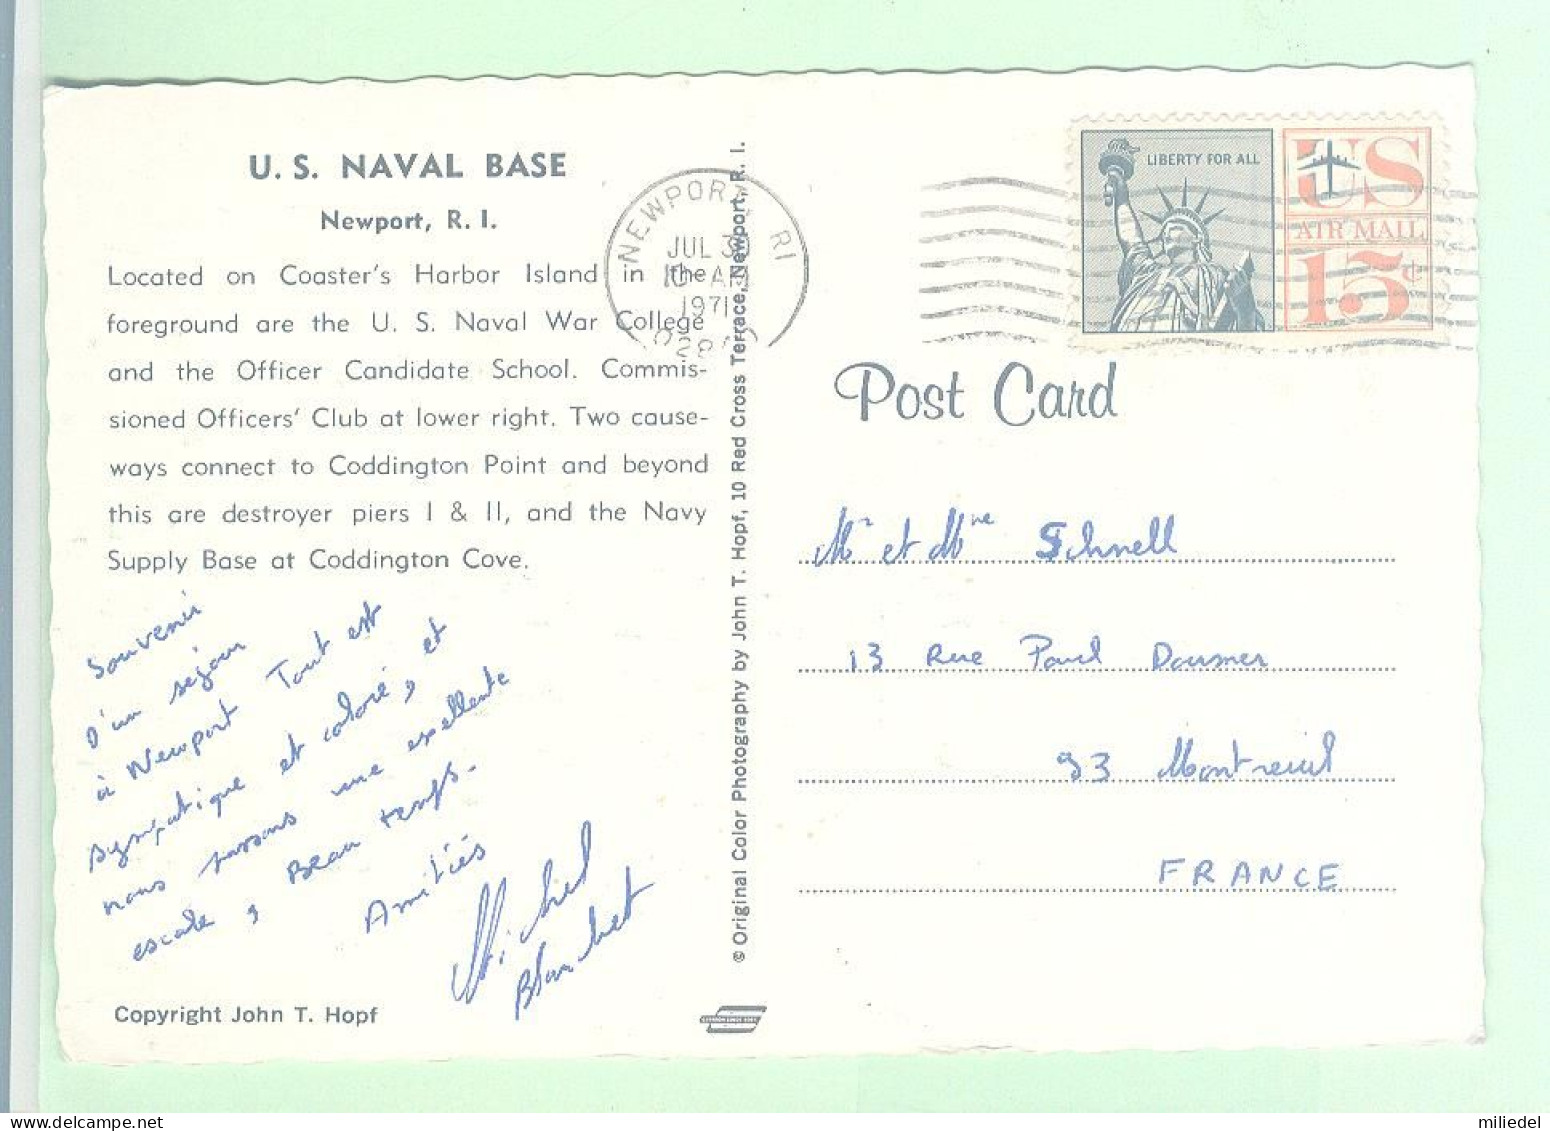 U. S. NAVAL BASE
Newport, R. I.
Located on Coaster's Harbor Island in the
foreground are the U. S. Naval War College
and the Officer Candidate School. Commis-
sioned Officers' Club at lower right. Two cause-
ways connect to Coddington Point and beyond
this are destroyer piers I & II, and the Navy
Supply Base at Coddington Cove.
Souvenir
d'un séjour
à Newport Tout est
sympatique et coloré, et
nous passons une exellente
escale, Beau temps.
Amitiés
Michel
Blanchet
Copyright John T. Hopf
© Original Color Photography by John T. Hopf, 10 Red Cross Terrace, Newport, R. I.
NEWPORT RI
JUL 30
AM
1971
LIBERTY FOR ALL
US
AIR MAIL
15¢
Post Card
Mr et Mme Schnell
13 Rue Paul Doumer
93 Montreuil
FRANCE
miliedel